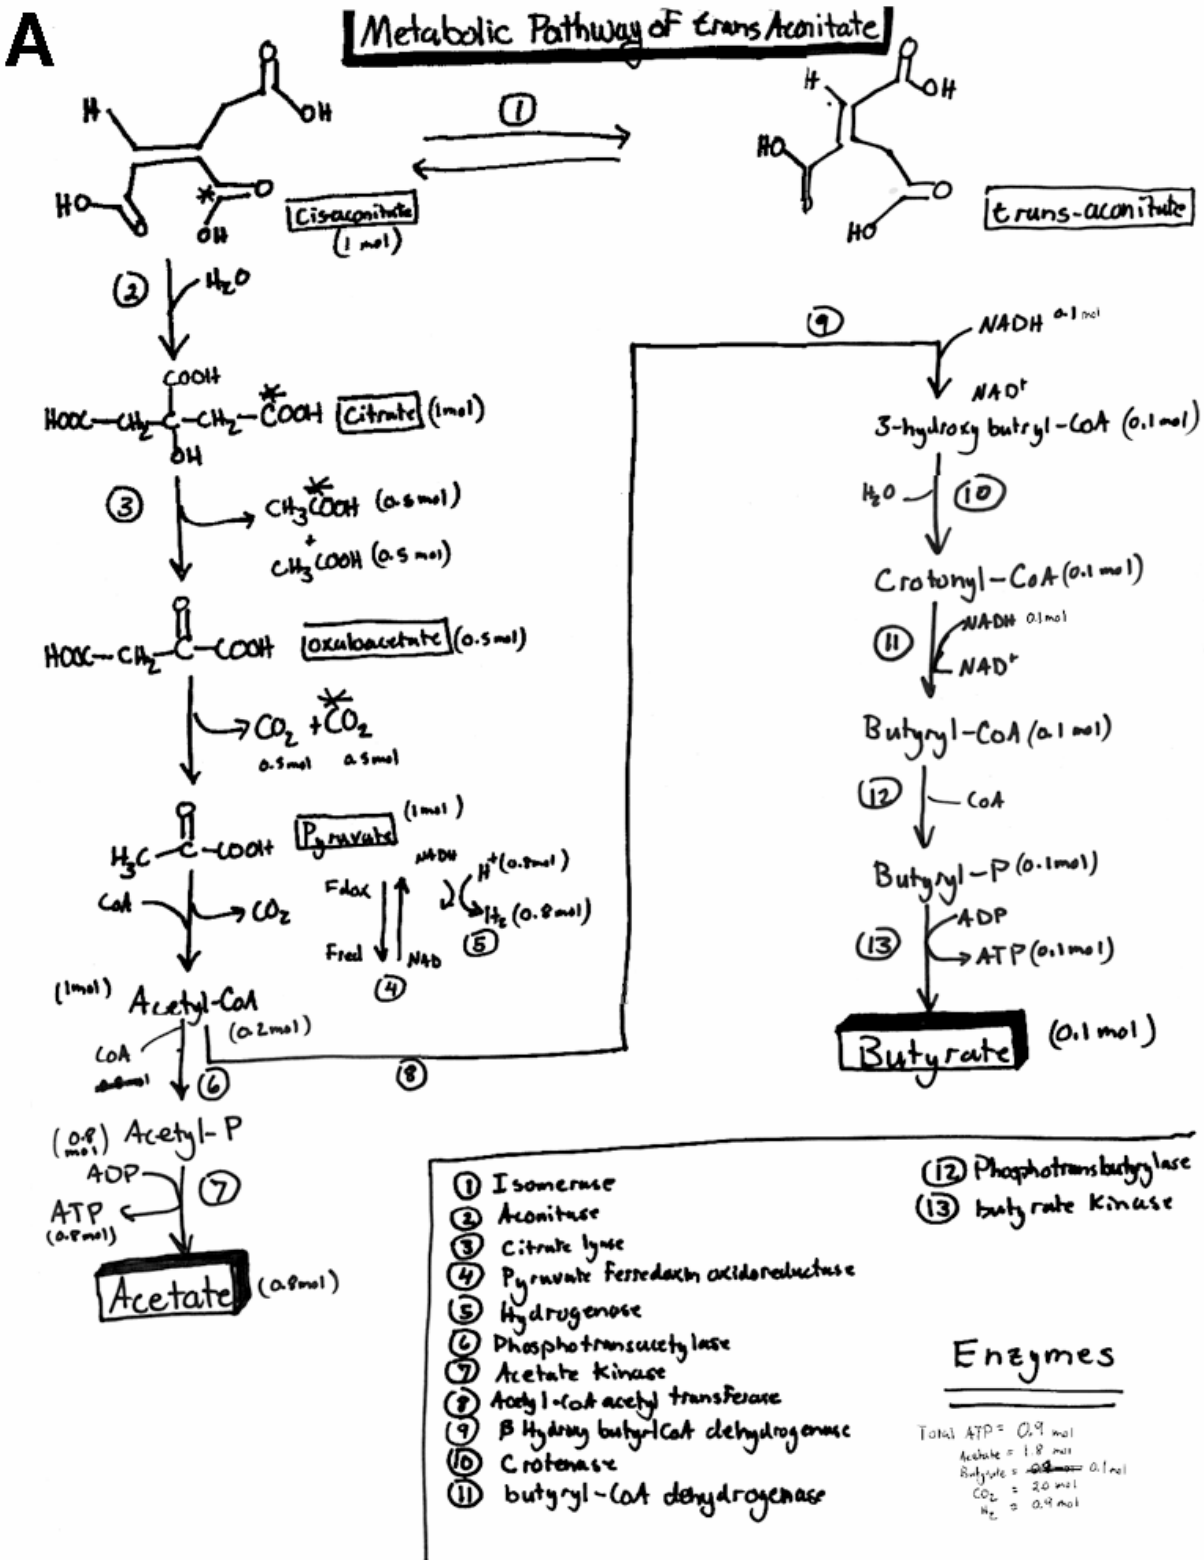 A
Metabolic Pathway of trans Aconitate
H
O
OH
HO
O
*
O
OH
Cis-aconitate
(1 mol)
1
H
O
OH
HO
O
O
HO
trans-aconitate
2
H₂O
COOH
HOOC-CH₂-C-CH₂-COOH
*
OH
Citrate (1mol)
3
*
CH₃COOH (0.5mol)
+
CH₃COOH (0.5 mol)
O
HOOC-CH₂-C-COOH
oxaloacetate (0.5mol)
*
CO₂ + CO₂
0.5mol 0.5mol
O
H₃C-C-COOH
Pyruvate (1mol)
CoA
CO₂
Fdox
Fred
NADH
NAD
4
H⁺(0.8mol)
H₂ (0.8mol)
5
(1mol) Acetyl-CoA
(0.2mol)
CoA
6
8
(0.8 mol) Acetyl-P
ADP
ATP
(0.8mol)
7
Acetate (0.8mol)
9
NADH 0.1 mol
NAD⁺
3-hydroxy butryl-CoA (0.1mol)
H₂O
10
Crotonyl-CoA (0.1mol)
11
NADH 0.1mol
NAD⁺
Butyryl-CoA (0.1 mol)
12
CoA
Butyryl-P (0.1mol)
13
ADP
ATP (0.1mol)
Butyrate (0.1 mol)
1 Isomerase
2 Aconitase
3 Citrate lyase
4 Pyruvate Ferredoxin oxidoreductase
5 Hydrogenase
6 Phosphotransacetylase
7 Acetate Kinase
8 Acetyl-CoA acetyl transferase
9 β Hydroxy butyrlCoA dehydrogenase
10 Crotenase
11 butyryl-CoA dehydrogenase
12 Phosphotransbutyrylase
13 butyrate Kinase
Enzymes
Total ATP = 0.9 mol
Acetate = 1.8 mol
Butyrate = 0.1 mol
CO₂ = 2.0 mol
H₂ = 0.9 mol